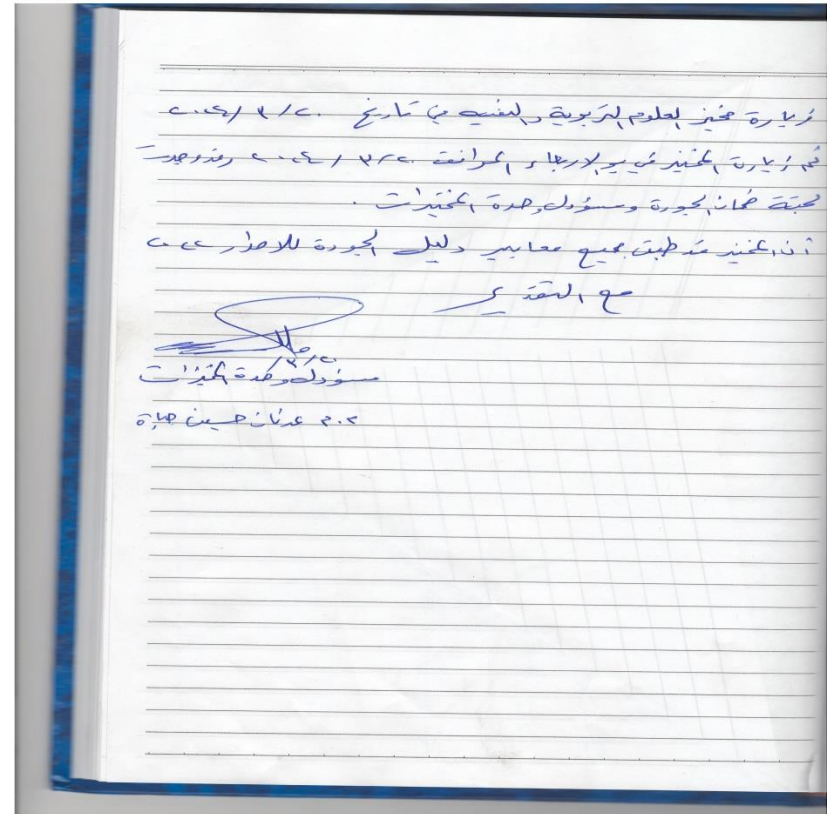 زيارة مختبر العلوم التربوية والنفسية في تاريخ ٢٠ / ٣ / ٢٠٢٤
تم زيارة المختبر في يوم الاربعاء الموافق ٢٠ / ٣ / ٢٠٢٤ وقد وجدت
لجنة ضمان الجودة ومسؤول وحدة المختبرات .
أن المختبر قد طبق جميع معايير دليل الجودة للاصدار
مع التقدير
٢٠ / ٣
مسؤول وحدة المختبرات
م.م عدنان حسين